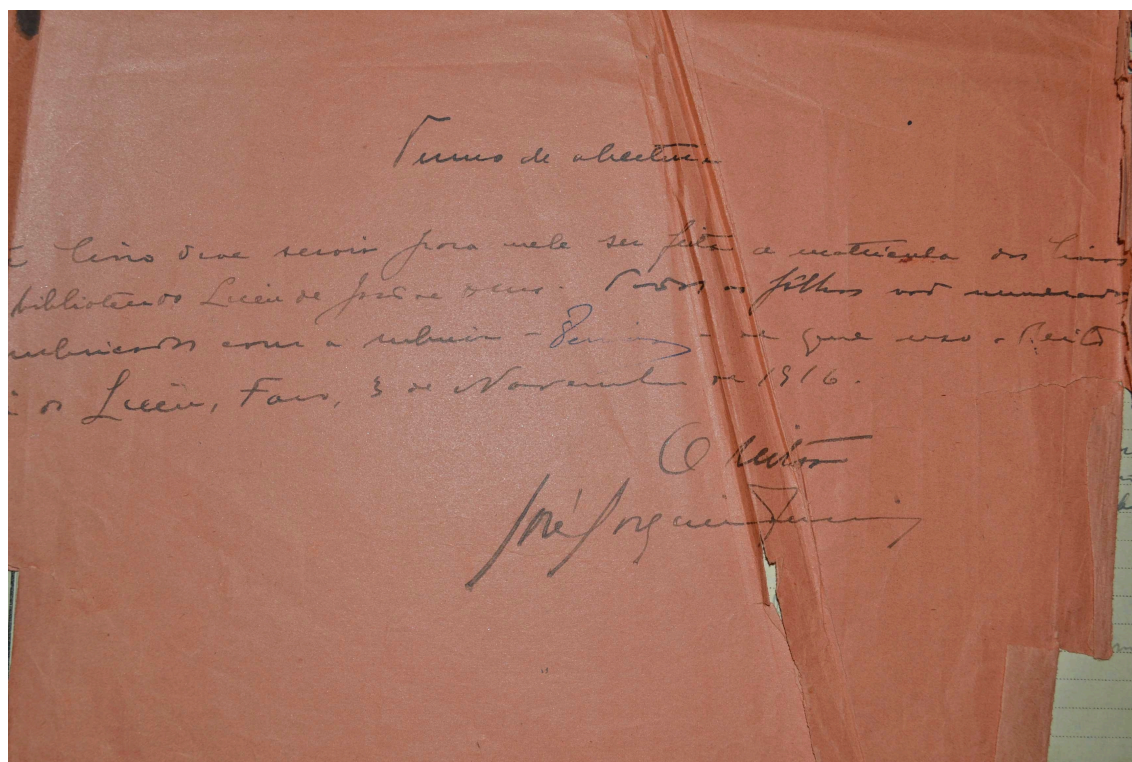 Termo de abertura
livro deve servir para nele ser feita a matricula dos livros
biblioteca do Liceu de João de Deus. Todas as fôlhas vão numeradas
rubricadas com a rubrica - - de que uso. Reito
do Liceu, Faro, 3 de Novembro de 1916.
O reitor
José Joaquim